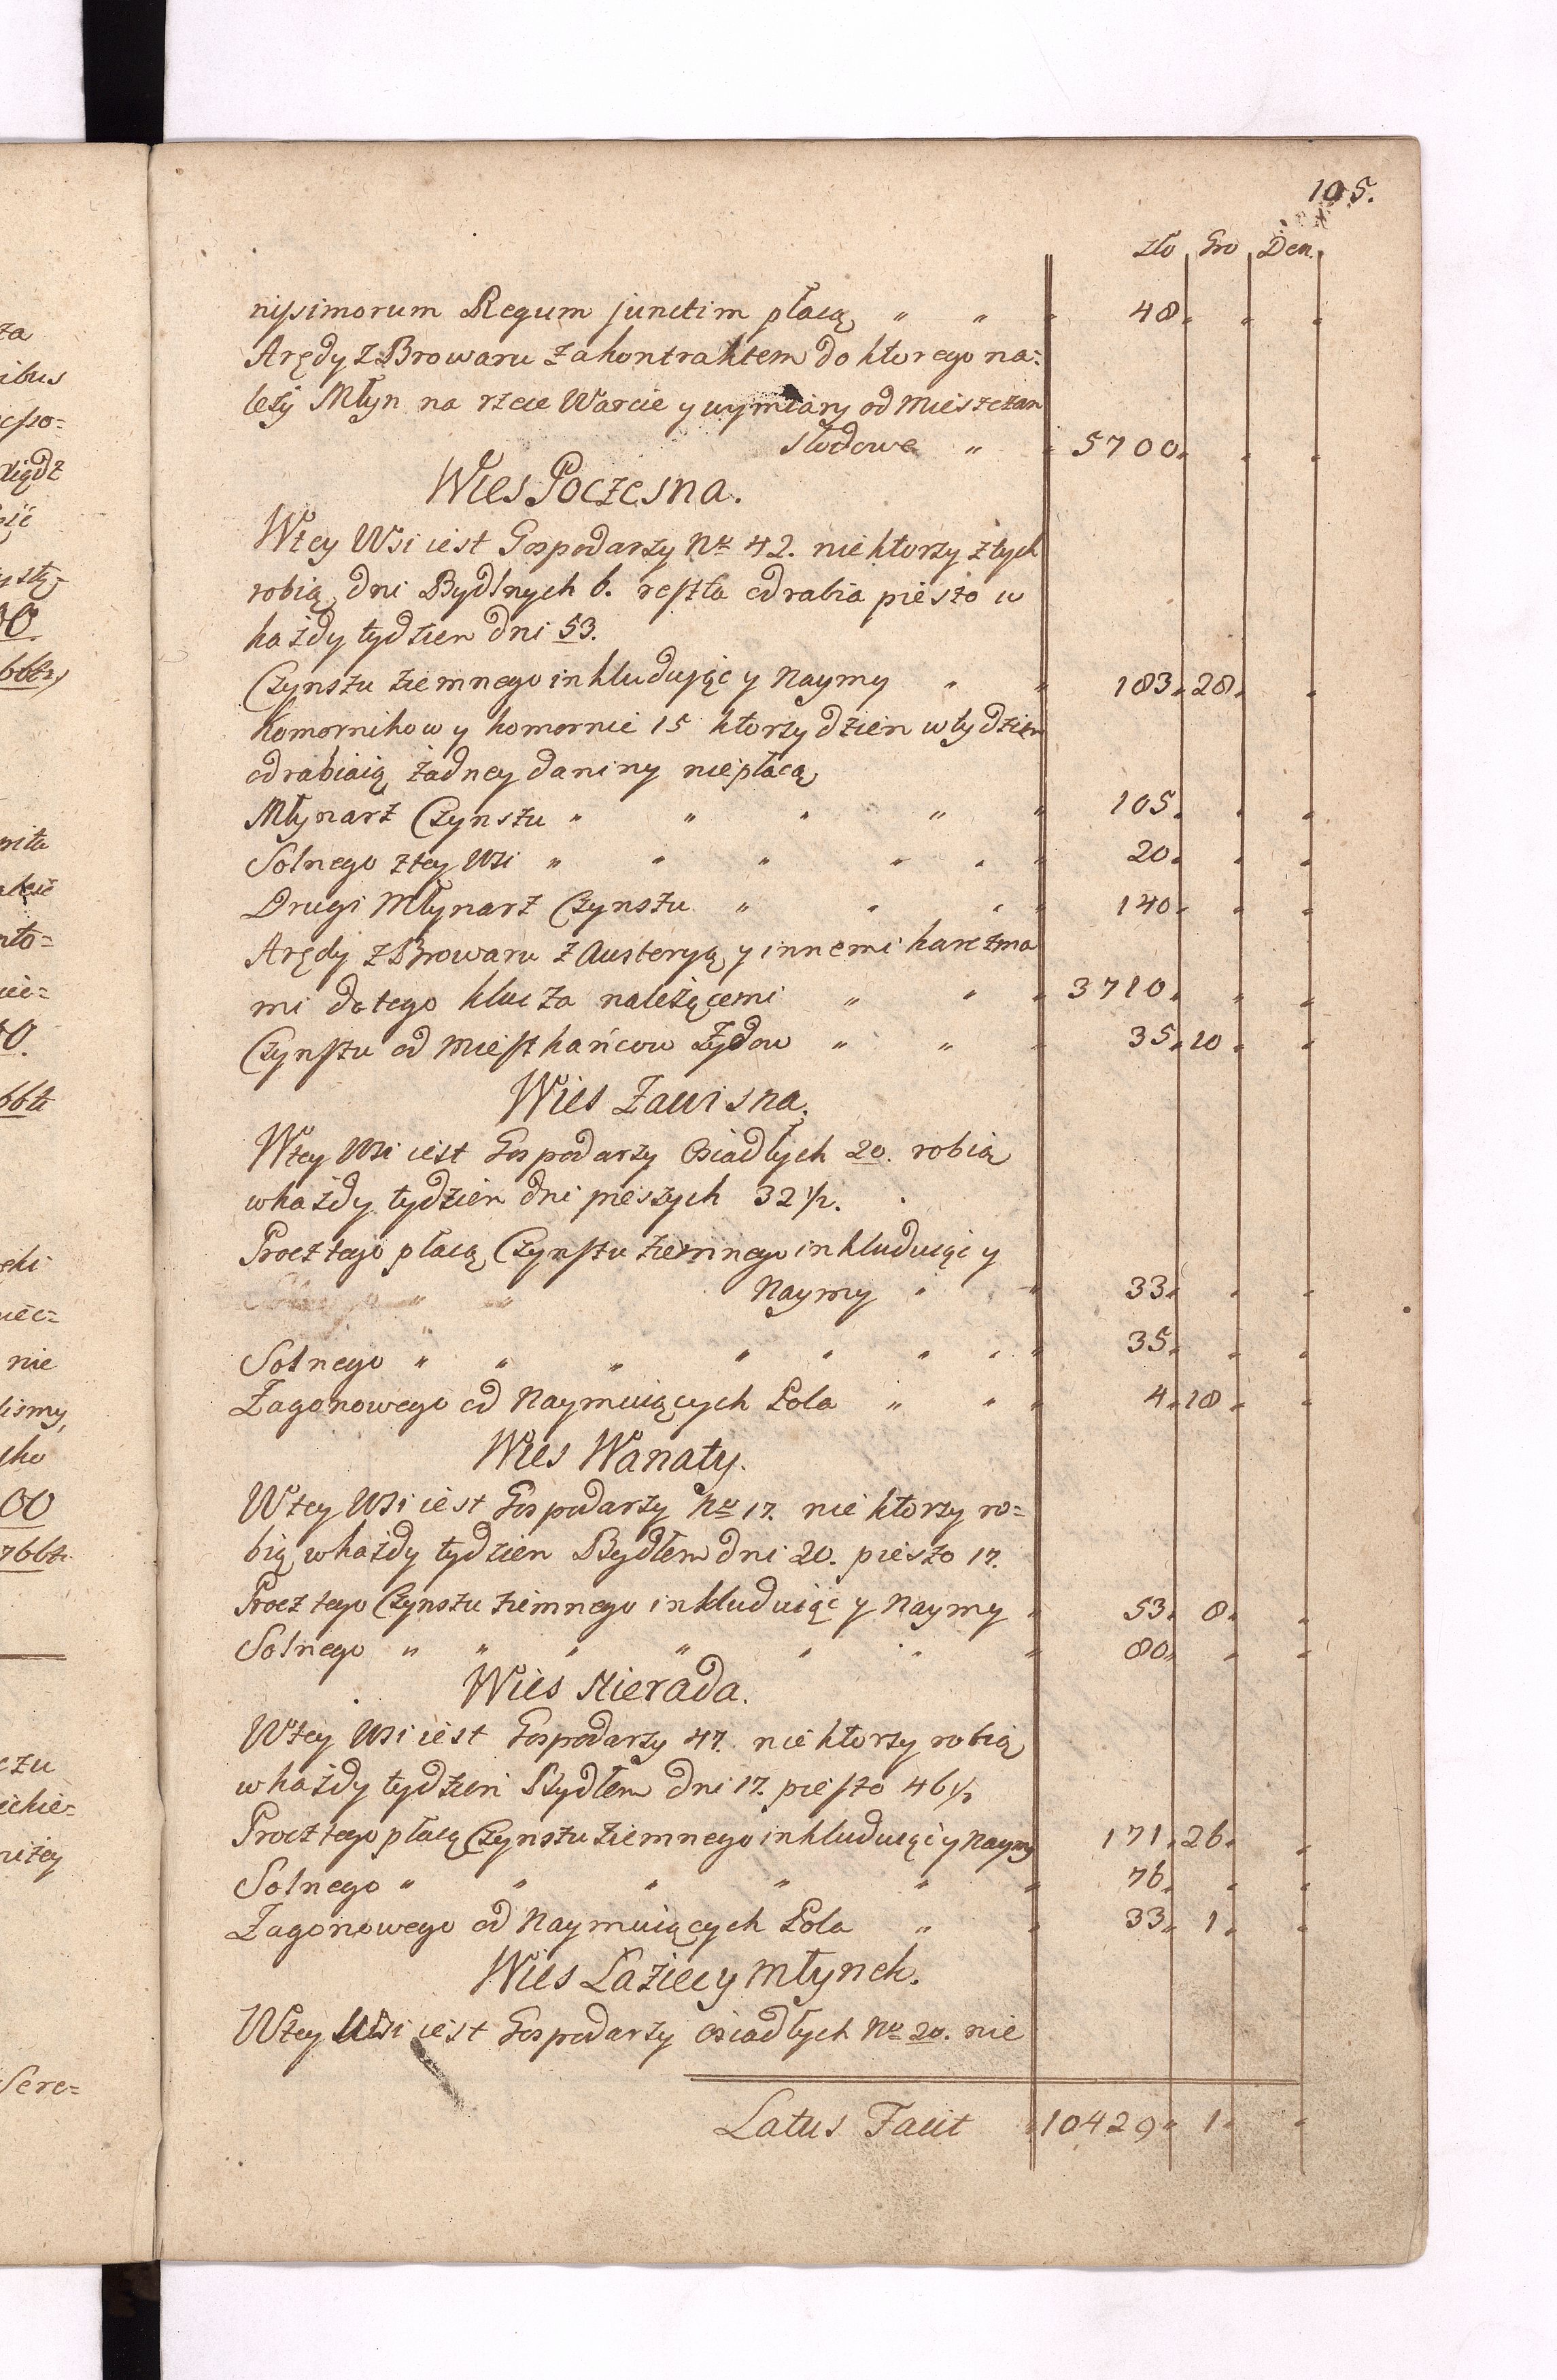 105.
Zło Gro Den.
nissimorum Regum junctim płacą " " " 48 " " "
Arędy z Browaru za kontraktem do ktorego na=
leży Młyn na rzece Warcie y wymiary od Mieszczan
słodowe " " 5700 " " "
Wies Poczesna.
W tey Wsi iest Gospodarzy No 42. niektorzy z tych
robią dni Bydlnych 6. reszta odrabia pieszo w
każdy tydzien dni 53.
Czynszu ziemnego inkludując y Naymy " " 183 " 28 " "
Komornikow y komornic 15 ktorzy dzien w tydzien
odrabiaią żadney daniny niepłacą
Młynarz Czynszu " " " " " 105 " " "
Solnego z tey Wsi " " " " " " 20 " " "
Drugi Młynarz Czynszu " " " " 140 " " "
Arędy z Browaru z Austeryą y innemi karczma
mi do tego klucza należącemi " " " 3710 " " "
Czynszu od Mieszkańcow Żydow " " " 35 " 10 " "
Wies Zawisna.
W tey Wsi iest Gospodarzy Osiadłych 20. robią
w każdy tydzien dni pieszych 32 1/2.
Procz tego płacą Czynszu ziemnego inkluduiąc y
Naymy " " 33 " " "
Solnego " " " " " " " " 35 " " "
Zagonowego od Naymuiących Pola " " " 4 " 18 " "
Wies Wanaty.
W tey Wsi iest Gospodarzy No 17. niektorzy ro=
bią w każdy tydzien Bydłem dni 20. pieszo 17.
Procz tego Czynszu ziemnego inkluduiąc y Naymy " 53 " 8 " "
Solnego " " " " " " " 80 " " "
Wies Nierada.
W tey Wsi iest Gospodarzy 47. niektorzy robią
w każdy tydzien Bydłem dni 17. pieszo 46 1/2
Procz tego płacą Czynszu ziemnego inkluduiąc y Naymy 171 " 26 " "
Solnego " " " " " " 76 " " "
Zagonowego od Naymuiących Pola " " 33 " 1 " "
Wies Łaziec y Młynek.
W tey Wsi iest Gospodarzy osiadłych No 20. nie
Latus Facit " 10429 " 1 " "